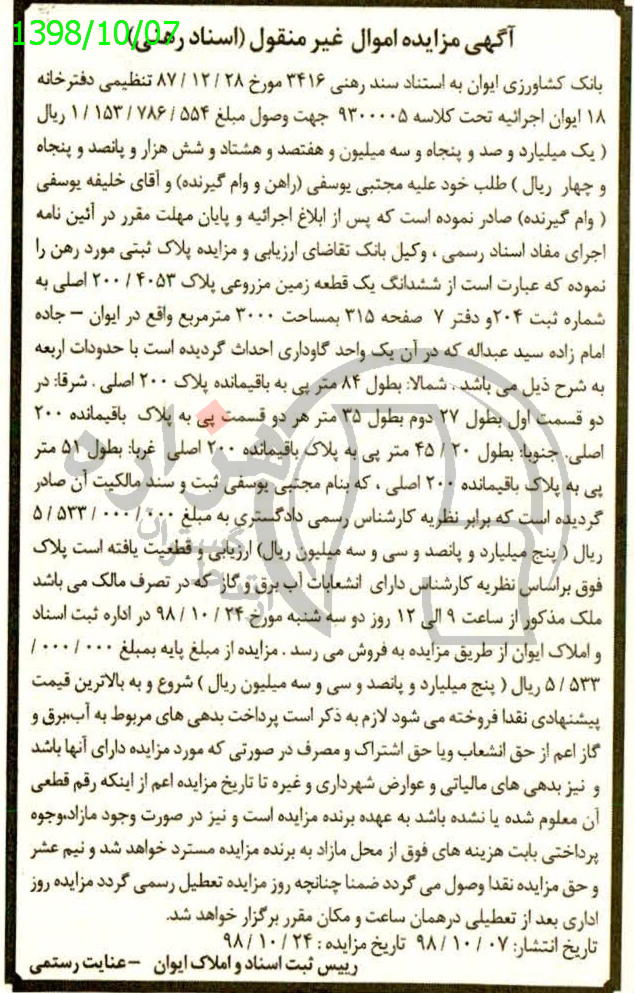 1398/10/07
آگهی مزایده اموال غیر منقول (اسناد رهنی)
بانک کشاورزی ایوان به استناد سند رهنی ۳۴۱۶ مورخ ۲۸ / ۱۲ / ۸۷ تنظیمی دفترخانه
۱۸ ایوان اجرائیه تحت کلاسه ۹۳۰۰۰۰۵ جهت وصول مبلغ ۵۵۴ / ۷۸۶ / ۱۵۳ / ۱ ریال
( یک میلیارد و صد و پنجاه و سه میلیون و هفتصد و هشتاد و شش هزار و پانصد و پنجاه
و چهار ریال ) طلب خود علیه مجتبی یوسفی (راهن و وام گیرنده) و آقای خلیفه یوسفی
( وام گیرنده) صادر نموده است که پس از ابلاغ اجرائیه و پایان مهلت مقرر در آئین نامه
اجرای مفاد اسناد رسمی ، وکیل بانک تقاضای ارزیابی و مزایده پلاک ثبتی مورد رهن را
نموده که عبارت است از ششدانگ یک قطعه زمین مزروعی پلاک ۴۰۵۳ / ۲۰۰ اصلی به
شماره ثبت ۲۰۴و دفتر ۷ صفحه ۳۱۵ بمساحت ۳۰۰۰ مترمربع واقع در ایوان – جاده
امام زاده سید عبداله که در آن یک واحد گاوداری احداث گردیده است با حدودات اربعه
به شرح ذیل می باشد . شمالا: بطول ۸۴ متر پی به باقیمانده پلاک ۲۰۰ اصلی . شرقا: در
دو قسمت اول بطول ۲۷ دوم بطول ۳۵ متر هر دو قسمت پی به پلاک باقیمانده ۲۰۰
اصلی. جنوبا: بطول ۲۰ / ۴۵ متر پی به پلاک باقیمانده ۲۰۰ اصلی غربا: بطول ۵۱ متر
پی به پلاک باقیمانده ۲۰۰ اصلی ، که بنام مجتبی یوسفی ثبت و سند مالکیت آن صادر
گردیده است که برابر نظریه کارشناس رسمی دادگستری به مبلغ ۰۰۰ / ۰۰۰ / ۵۳۳ / ۵
ریال ( پنج میلیارد و پانصد و سی و سه میلیون ریال) ارزیابی و قطعیت یافته است پلاک
فوق براساس نظریه کارشناس دارای انشعابات آب برق و گاز که در تصرف مالک می باشد
ملک مذکور از ساعت ۹ الی ۱۲ روز دو سه شنبه مورخ ۲۴ / ۱۰ / ۹۸ در اداره ثبت اسناد
و املاک ایوان از طریق مزایده به فروش می رسد . مزایده از مبلغ پایه بمبلغ ۰۰۰ / ۰۰۰ /
۵۳۳ / ۵ ریال ( پنج میلیارد و پانصد و سی و سه میلیون ریال ) شروع و به بالاترین قیمت
پیشنهادی نقدا فروخته می شود لازم به ذکر است پرداخت بدهی های مربوط به آب،برق و
گاز اعم از حق انشعاب ویا حق اشتراک و مصرف در صورتی که مورد مزایده دارای آنها باشد
و نیز بدهی های مالیاتی و عوارض شهرداری و غیره تا تاریخ مزایده اعم از اینکه رقم قطعی
آن معلوم شده یا نشده باشد به عهده برنده مزایده است و نیز در صورت وجود مازاد،وجوه
پرداختی بابت هزینه های فوق از محل مازاد به برنده مزایده مسترد خواهد شد و نیم عشر
و حق مزایده نقدا وصول می گردد ضمنا چنانچه روز مزایده تعطیل رسمی گردد مزایده روز
اداری بعد از تعطیلی درهمان ساعت و مکان مقرر برگزار خواهد شد.
تاریخ انتشار: ۰۷ / ۱۰ / ۹۸ تاریخ مزایده : ۲۴ / ۱۰ / ۹۸
رییس ثبت اسناد و املاک ایوان –عنایت رستمی
هزاره